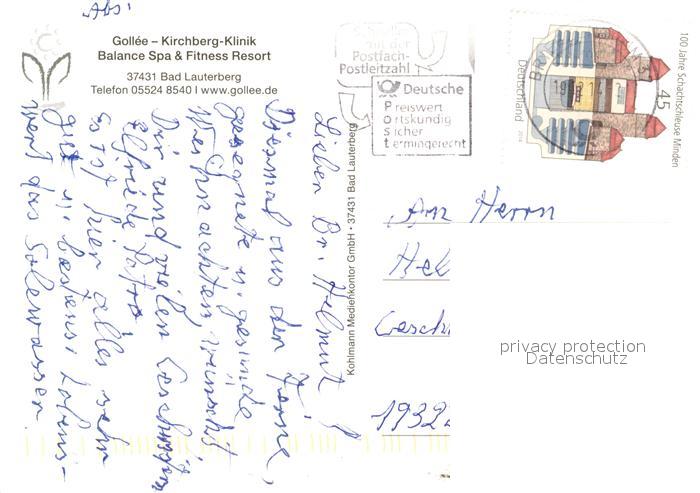 Abs:
Gollée – Kirchberg-Klinik
Balance Spa & Fitness Resort
37431 Bad Lauterberg
Telefon 05524 8540 I www.gollee.de
mit der
Postfach-
Postleitzahl
Deutsche
Preiswert
Ortskundig
sicher
termingerecht
100 Jahre Schachtschleuse Minden
45
Deutschland
2014
Kohlmann Medienkontor GmbH • 37431 Bad Lauterberg
Lieber Br. Helmut!
Diesmal aus der Ferne,
gesegnete u. gesunde
Weihnachten, wünscht
Dir und vielen
Elfriede
Es ist hier alles sehr
gut u. bestens! Lebens-
wert das Solewasser
An Herrn
Hel
Gesch
1932
privacy protection
Datenschutz